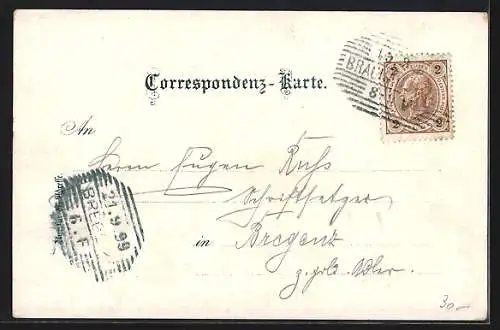 Correspondenz-Karte.
2 2
2 2
BRAU
8
An
Herrn Eugen Russ
Schriftsetzer
in Bregenz
z. gold. Adler.
BREG
21.9.99
6.F
30.-